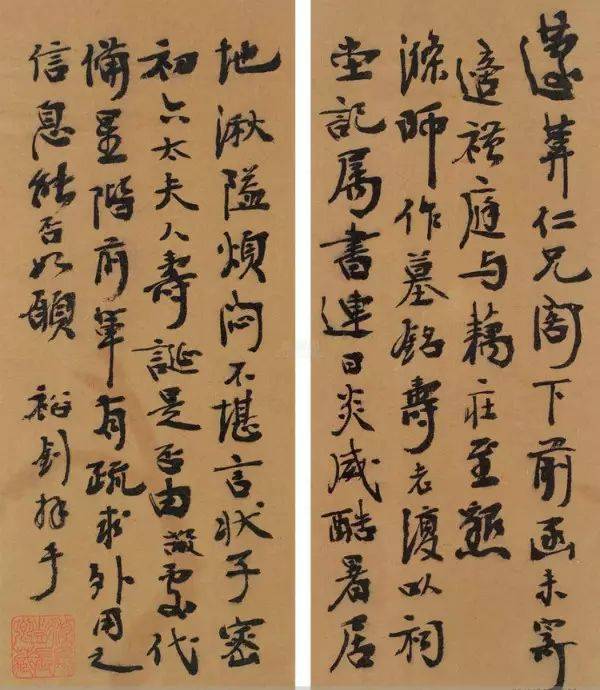 蓬莽仁兄阁下前函未寄
適禥庭与藕庄至懇
滌师作墓銘壽老復以祠
堂記属書連日炎威酷暑居
地湫隘煩闷不堪言状子密
初六太夫人壽誕是否由敝處代
備呈階前軍有疏求外用之
信息能否如願 裕釗拜手